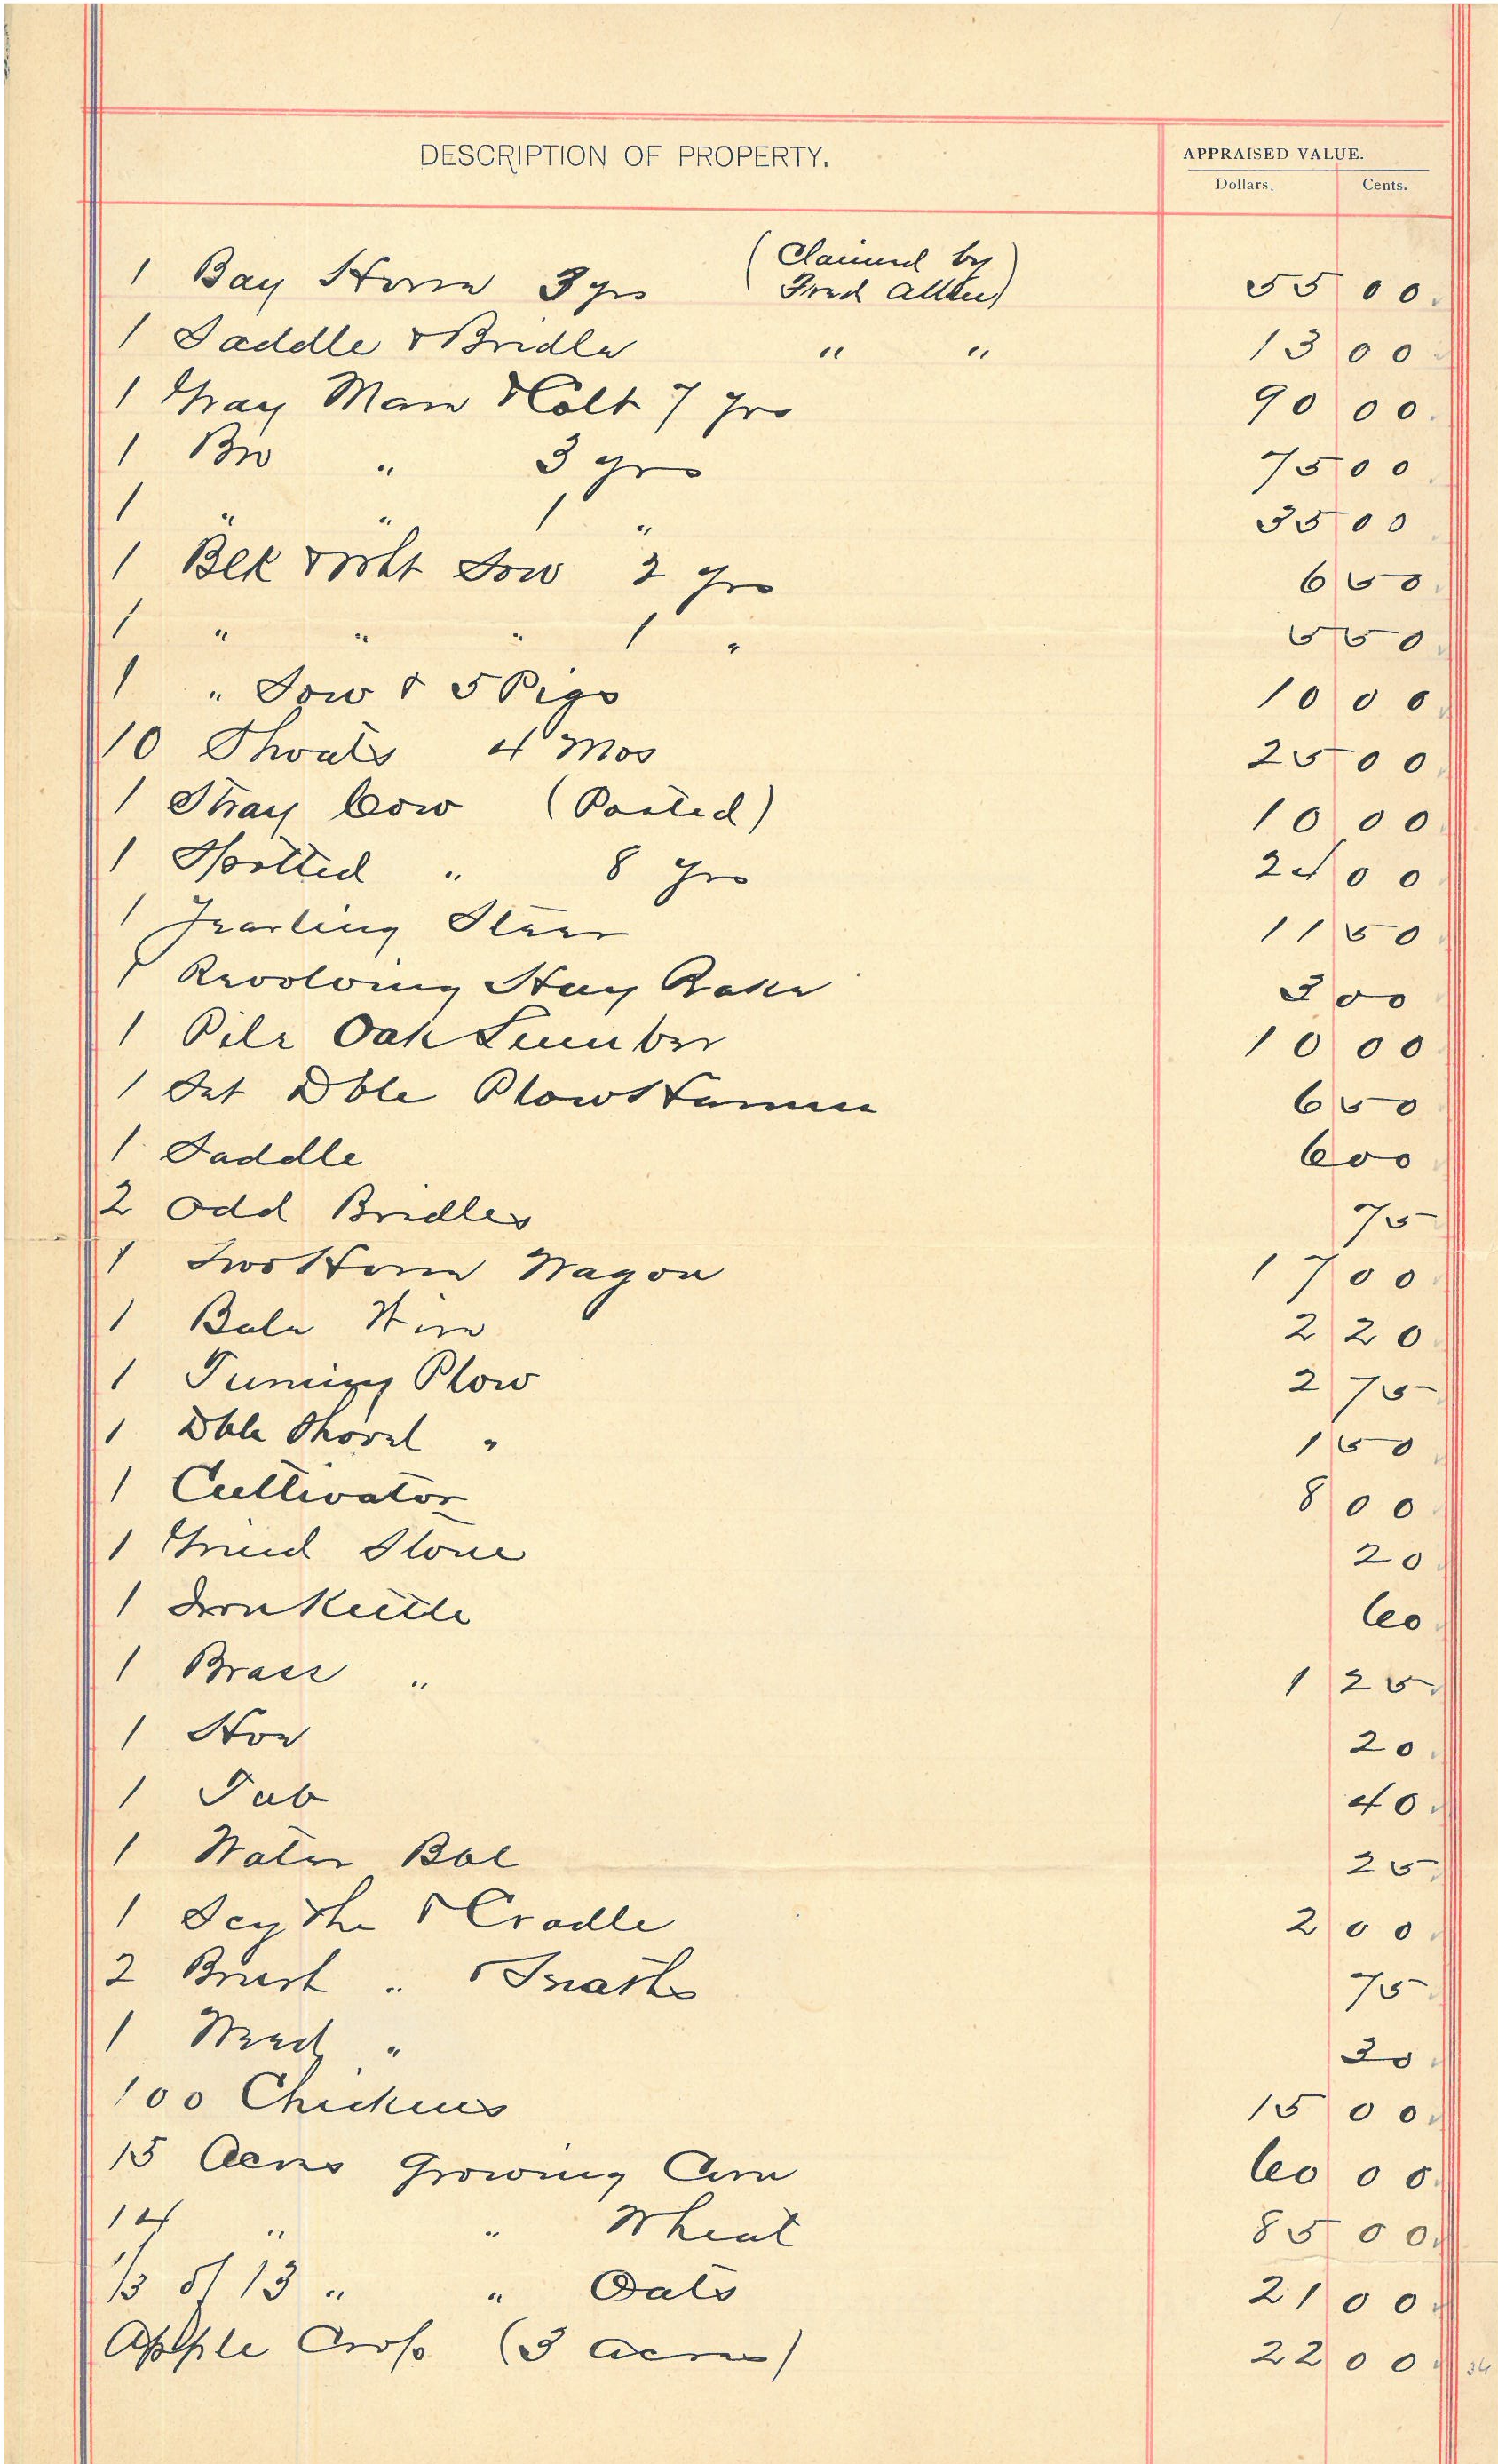 DESCRIPTION OF PROPERTY. APPRAISED VALUE.
Dollars. Cents.
1 Bay Horse 3 yrs (Claimed by Fred Allen) 55 00
1 Saddle & Bridle " " 13 00
1 Gray Mare & Colt 7 yrs 90 00
1 Bro " 3 yrs 75 00
1 " " 1 " 35 00
1 Blk & Wht Sow 2 yrs 6 50
1 " " " 1 " 5 50
1 " Sow & 5 Pigs 10 00
10 Shoats 4 Mos 25 00
1 Stray Cow (Posted) 10 00
1 Spotted " 8 yrs 24 00
1 Yearling Steer 11 50
1 Revolving Hay Rake 3 00
1 Pile Oak Lumber 10 00
1 Set Dble Plow Harness 6 50
1 Saddle 6 00
2 Odd Bridles 75
1 Two Horse Wagon 17 00
1 Bale Wire 2 20
1 Turning Plow 2 75
1 Dble Shovel " 1 50
1 Cultivator 8 00
1 Grind Stone 20
1 Iron Kettle 60
1 Brass " 1 25
1 Hoe 20
1 Tub 40
1 Water Bbl 25
1 Scythe & Cradle 2 00
2 Brush " & Snaths 75
1 Weed " 30
100 Chickens 15 00
15 Acres Growing Corn 60 00
14 " " Wheat 85 00
1/3 of 13 " " Oats 21 00
Apple Crop (3 acres) 22 00